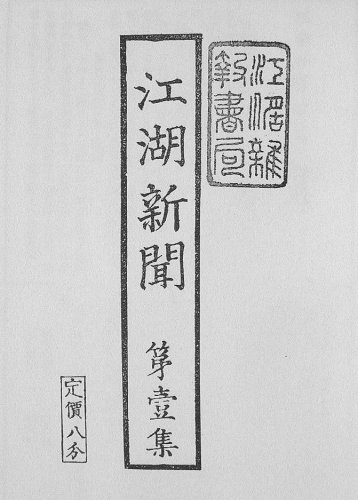 江湖雜
報書局
江湖新聞 第壹集
定價八分